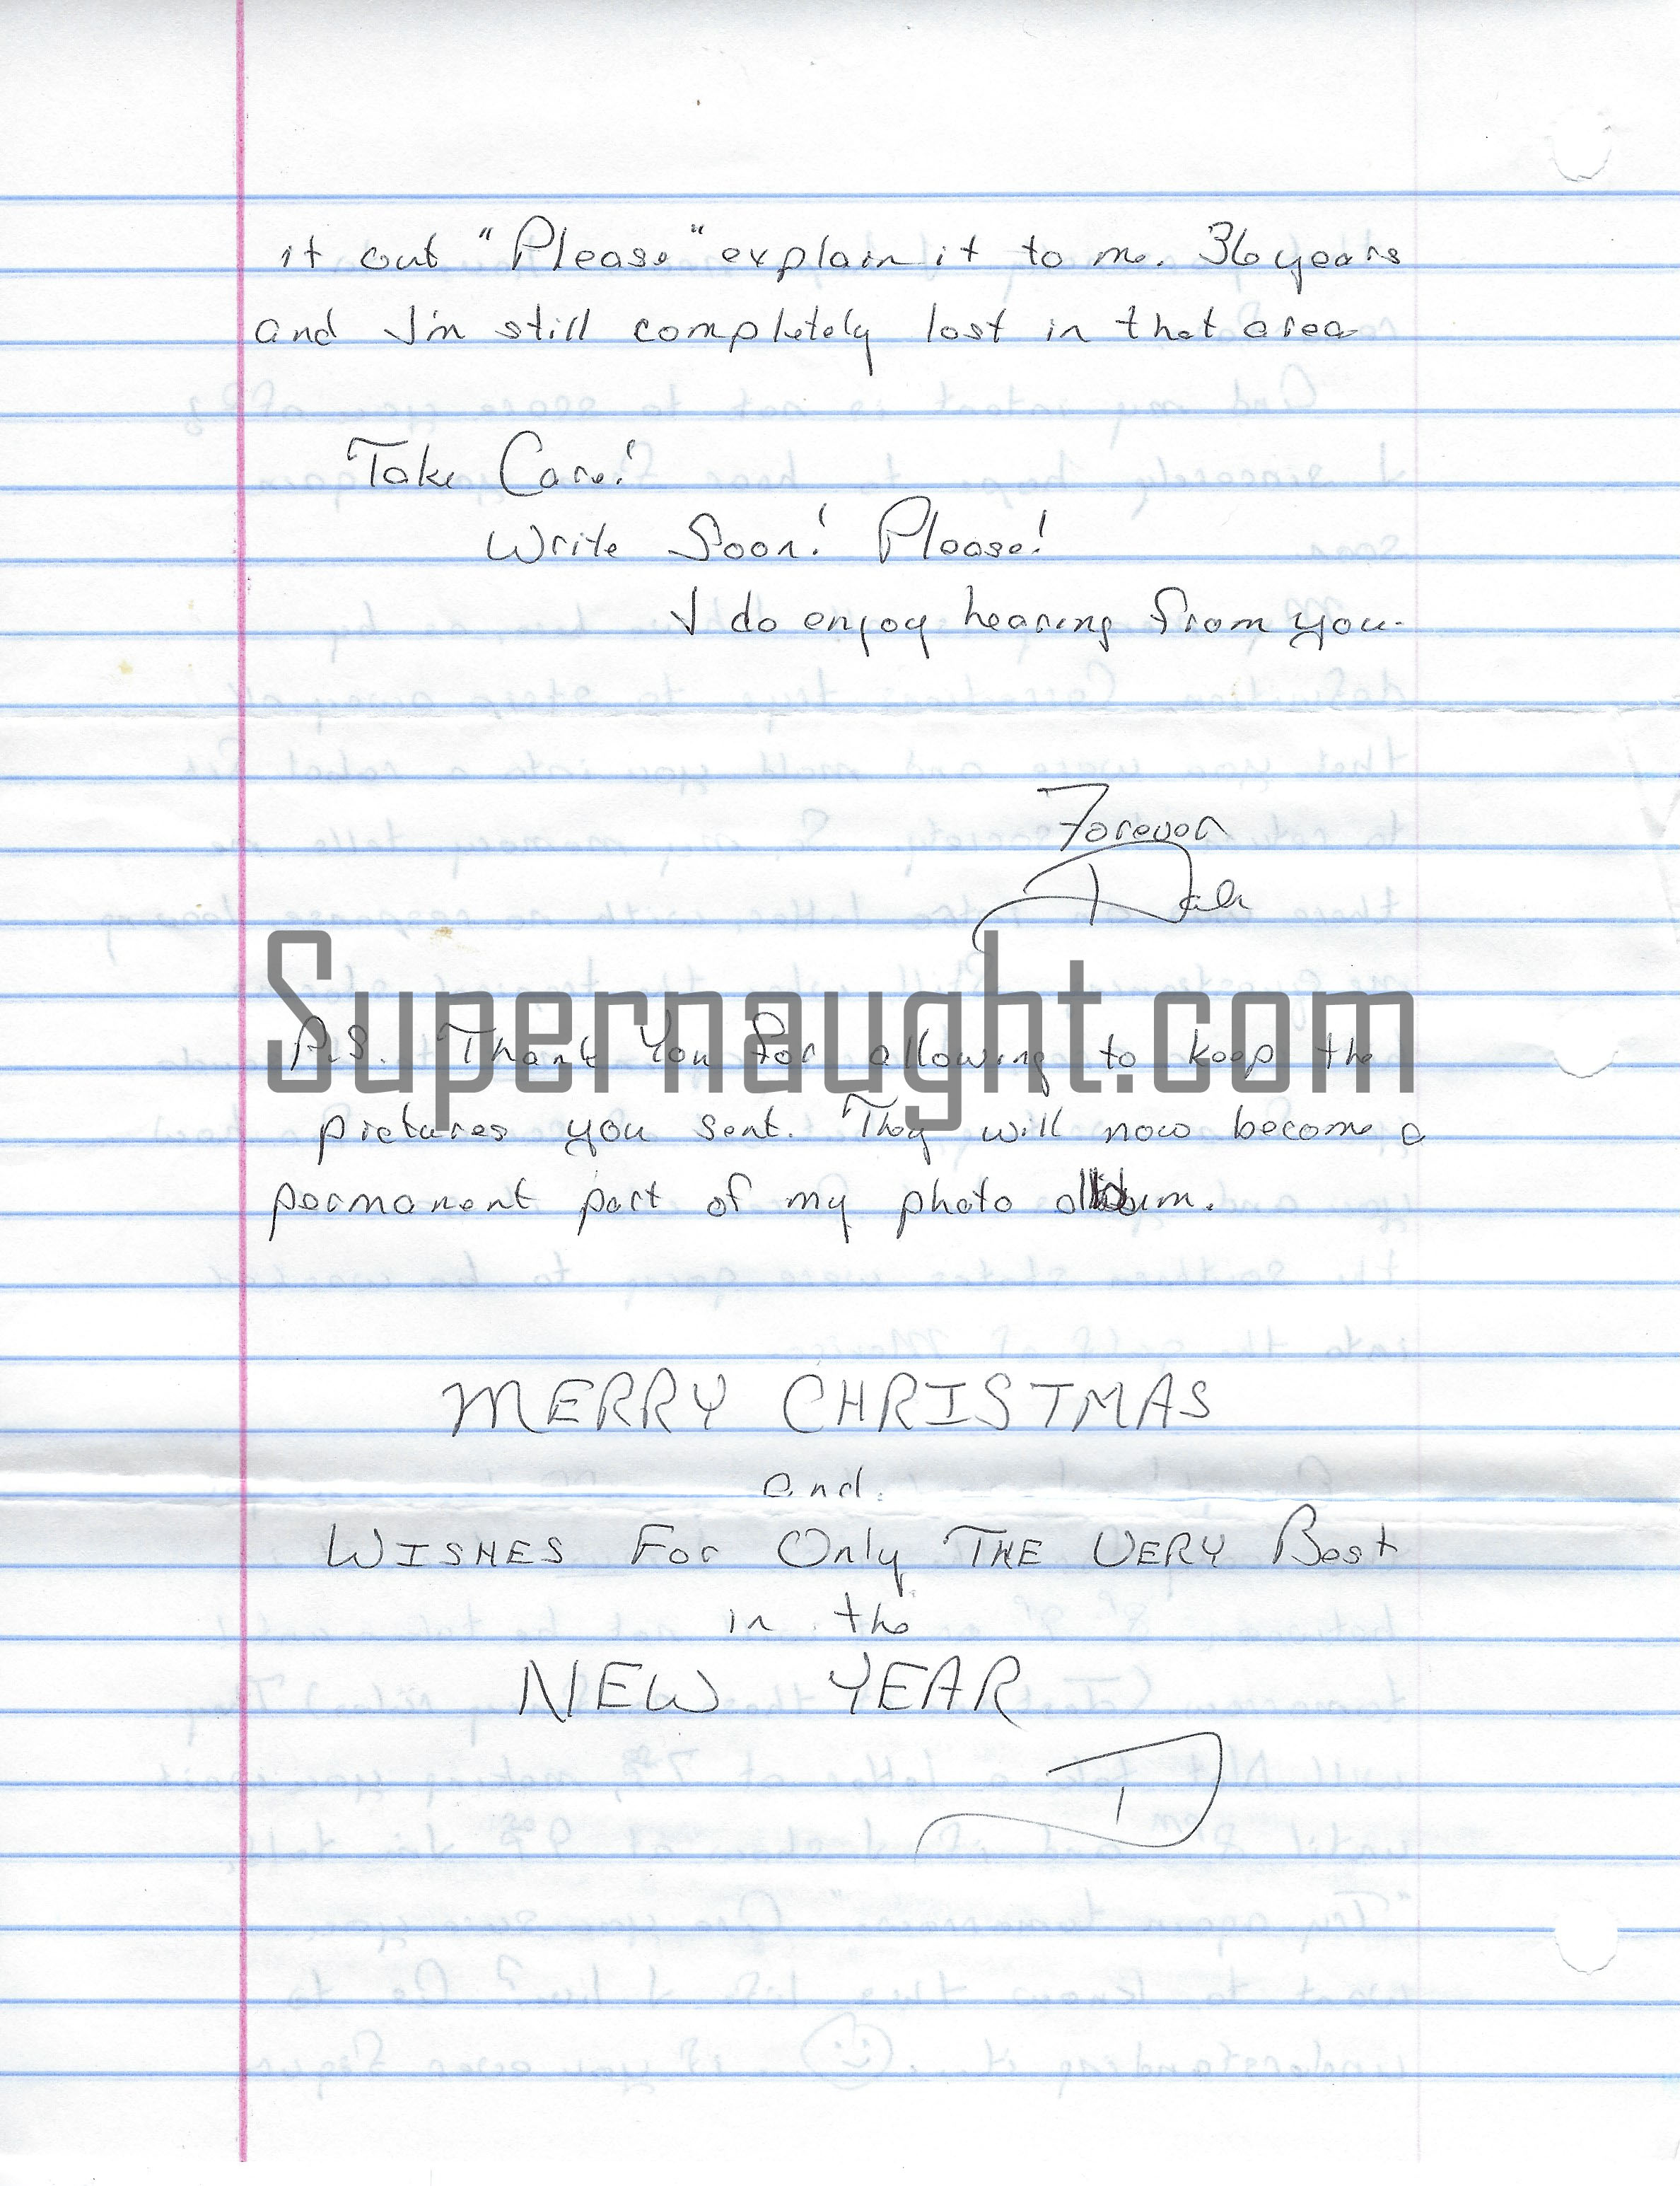 it out "Please" explain it to me. 36 years
and I'm still completely lost in that area
Take Care!
Write Soon! Please!
I do enjoy hearing from you.
Forever
Dale
Supernaught.com
P.S. Thank You for allowing to keep the
pictures you sent. They will now become a
permanent part of my photo album.
MERRY CHRISTMAS
and
WISHES For Only THE VERY Best
in the
NEW YEAR
D